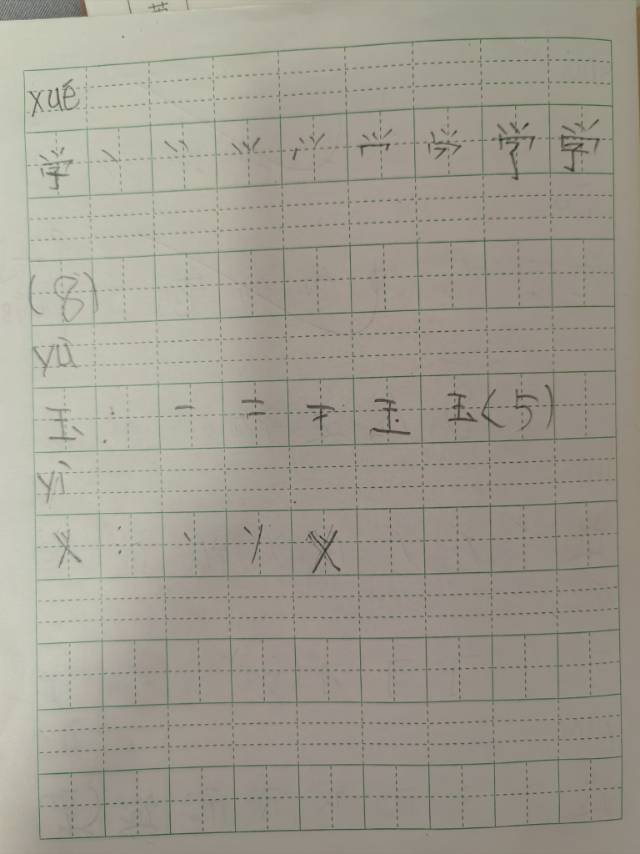 xué
学 丶 丷 ⺍ 学
(8)
yù
玉 : 一 二 干 王 玉(5)
yì
义 : 丶 乂 义